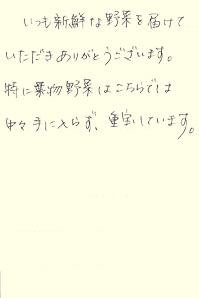 いつも新鮮な野菜を届けて
いただきありがとうございます。
特に葉物野菜はこちらでは
中々手に入らず、重宝しています。